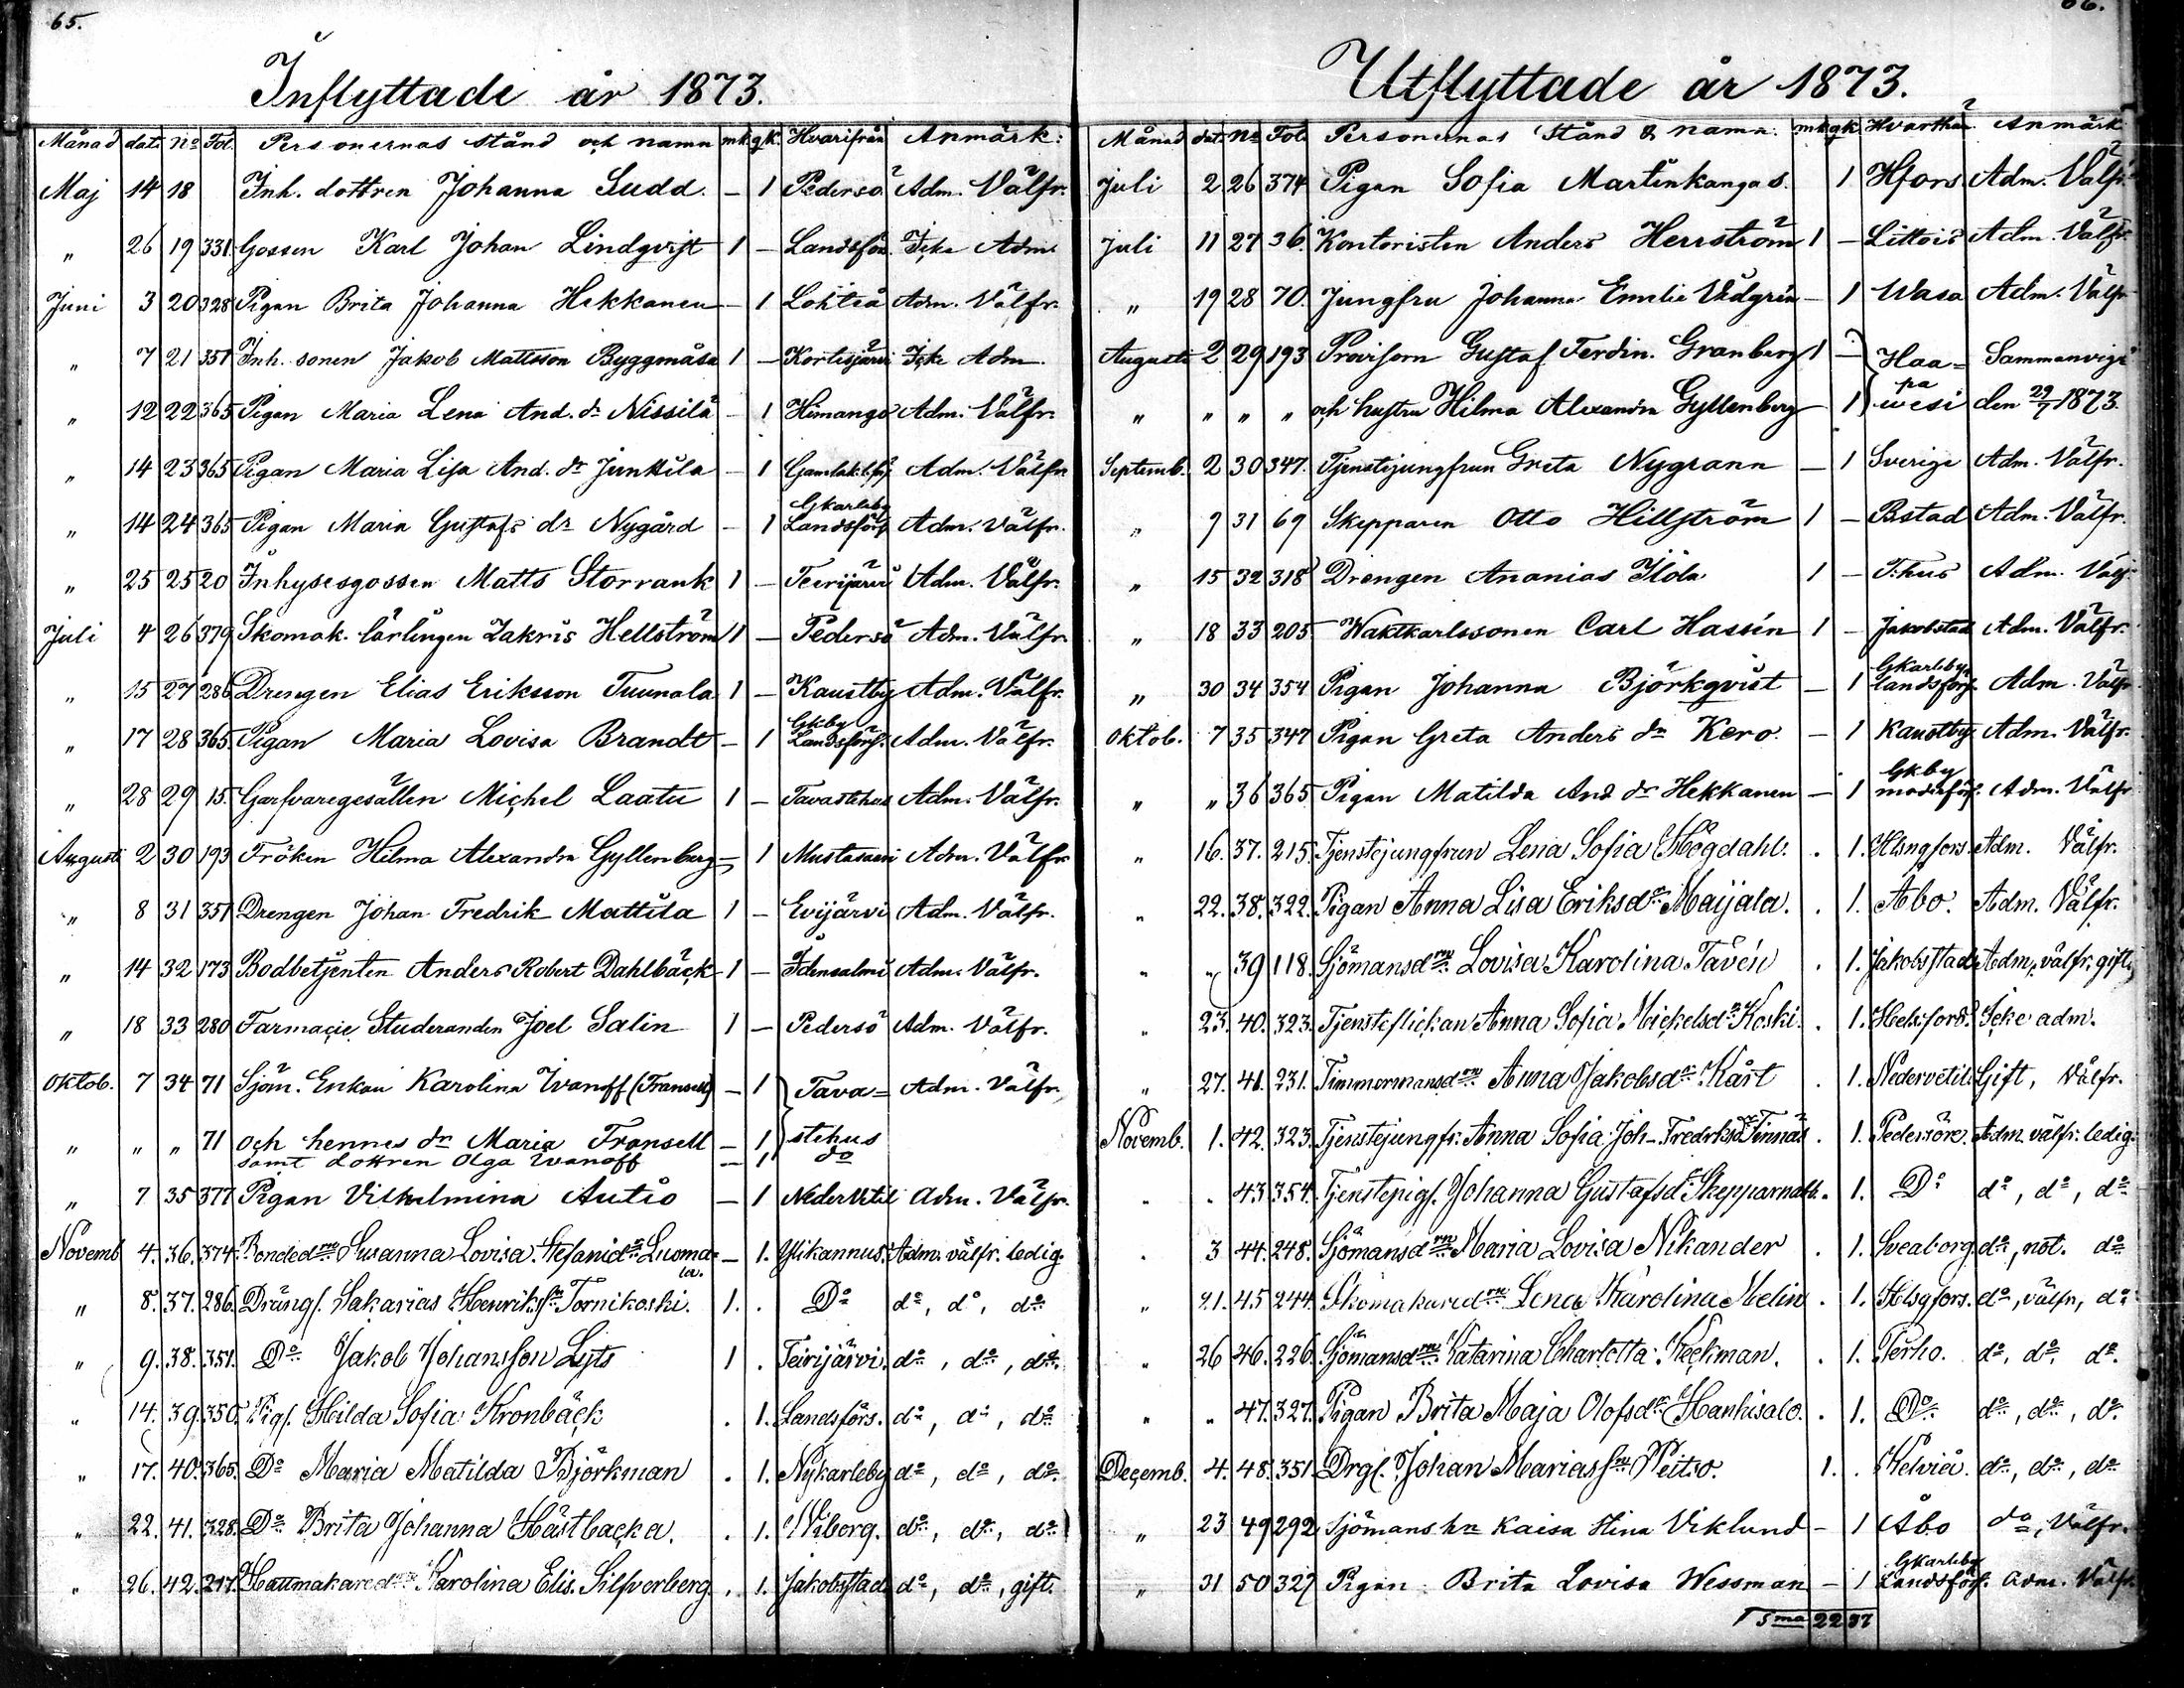 65.
Inflyttade år 1873.
Månad dat. No Fol. Personernas stånd och namn mk. qk. Hvarifrån Anmärk:
Maj 14 18 Inh. dottren Johanna Sudd. – 1 Pedersö Adm. Välfr.
" 26 19 331 Gossen Karl Johan Lindqvist 1 – Landsförs. Icke Adm.
Juni 3 20 328 Pigan Brita Johanna Hekkanen – 1 Lohteå Adm. Välfr.
" 7 21 351 Inh. sonen Jakob Mattsson Byggmäsa 1 – Kortesjärvi Icke Adm.
" 12 22 365 Pigan Maria Lena And. dr Nissilä – 1 Himango Adm. Välfr.
" 14 23 365 Pigan Maria Lisa And. dr Junttila – 1 Gamlak.lfs. Adm. Välfr.
" 14 24 365 Pigan Maria Gustafs dr Nygård – 1 Gkarleby Landsförs. Adm. Välfr.
" 25 25 20 Inhysesgossen Matts Storrank 1 – Teerijärvi Adm. Välfr.
Juli 4 26 379 Skomak. lärlingen Zakris Hellström 1 – Pedersö Adm. Välfr.
" 15 27 286 Drengen Elias Eriksson Tuunala 1 – Kaustby Adm. Välfr.
" 17 28 365 Pigan Maria Lovisa Brandt – 1 Gkby Landsförs. Adm. Välfr.
" 28 29 15. Garfvaregesällen Michel Laatu 1 – Tavastehus Adm. Välfr.
Augusti 2 30 193 Fröken Hilma Alexandra Gyllenberg – 1 Mustasaari Adm. Välfr.
" 8 31 351 Drengen Johan Fredrik Mattila 1 – Evijärvi Adm. Välfr.
" 14 32 173 Bodbetjenten Anders Robert Dahlbäck 1 – Idensalmi Adm. Välfr.
" 18 33 280 Farmacie Studeranden Joel Salin 1 – Pedersö Adm. Välfr.
Oktob. 7 34 71 Sjöm. Enkan Karolina Ivanoff (Fransell) – 1 Tava= Adm. Välfr.
" " " 71 och hennes dr Maria Fransell – 1 stehus
samt dottren Olga Ivanoff – 1 do
" 7 35 377 Pigan Vilhelmina Autio – 1 Nedervetil Adm. Välfr.
Novemb 4. 36. 374. Bondedrn Susanna Lovisa Stefanidr Luoma= la. – 1. Ylikannus. Adm. välfr. ledig.
" 8. 37. 286. Drängs. Sakarias Henriksson Tornikoski. 1. . Do do, do, do
" 9. 38. 351. Do Jakob Johansson Lyts 1 . Teirijärvi. do, do, do
" 14. 39. 350. Pigs. Hilda Sofia Kronbäck . 1. Landsförs. do, do, do
" 17. 40. 365. Do Maria Matilda Björkman . 1. Nykarleby do, do, do
" 22. 41. 328. Do Brita Johanna Hästbacka. . 1. Wiborg. do, do, do
" 26. 42. 217. Hattmakaredrn Karolina Elis. Silfverberg . 1. Jakobsstad do, do, gift.
66.
Utflyttade år 1873.
Månad dat. No Fol. Personernas Stånd & namn. mk. qk. Hvarthän Anmärk
Juli 2 26 374 Pigan Sofia Martinkangas. 1 Hfors. Adm. Välfr.
Juli 11 27 36. Kontoristen Anders Herrström 1 – Littois Adm. Välfr.
" 19 28 70. Jungfru Johanna Emelie Vidgrén – 1 Wasa Adm. Välfr.
Augusti 2 29 193 Provisorn Gustaf Ferdin. Granberg 1 – Haa= Sammanvigd
" " " " och hustru Hilma Alexandra Gyllenberg – 1 pa wesi den 29/7 1873.
Septemb. 2 30 347. Tjenstejungfrun Greta Nygrann – 1 Sverige Adm. Välfr.
" 9 31 69 Skepparen Otto Hillström 1 – Bstad Adm. Välfr.
" 15 32 318 Drengen Ananias Ilola 1 – T.hus Adm. Välfr.
" 18 33 205 Waktkarlssonen Carl Hassén 1 – Jakobstad Adm. Välfr.
" 30 34 354 Pigan Johanna Björkqvist – 1 Gkarleby landsförs. Adm. Välfr.
Oktob. 7 35 347 Pigan Greta Anders dr Kero. – 1 Kaustby Adm. Välfr.
" " 36 365 Pigan Matilda And dr Hekkanen – 1 Gkby moderförs. Adm. Välfr.
" 16. 37. 215. Tjenstejungfrun Lena Sofia Högdahl. . 1. Hlsngfors. Adm. Välfr.
" 22. 38. 322. Pigan Anna Lisa Eriksdr Maijala. . 1. Åbo. Adm. Välfr.
" " 39 118. Sjömansdrn Lovisa Karolina Tavén . 1. Jakobsstad Adm. välfr. gift.
" 23. 40. 323. Tjensteflickan Anna Sofia Mickelsdr Koski. . 1. Helsfors. Icke adm.
" 27. 41. 231. Timmermansdrn Anna Jakobsdr Kårt . 1. Nedervetil Gift, Välfr.
Novemb. 1. 42. 323. Tjenstejungfr. Anna Sofia Joh. Fredriksdr Finnäs . 1. Pedersöre. Adm. välfr. ledig.
" " 43. 354. Tjenstepigs. Johanna Gustafsdr Skepparnabb. 1. Do do, do, do
" 3 44. 248. Sjömansdrn Maria Lovisa Nikander . 1. Sveaborg. do, not. do
" 21. 45 244. Skomakaredrn Lena Karolina Melin . 1. Hlsgfors. do, välfr, do
" 26 46. 226. Sjömansdrn Katarina Charlotta Keckman. . 1. Perho. do, do, do.
" " 47. 327. Pigan Brita Maja Olofsdr Hanhisalo. . 1. Do do, do, do.
Decemb. 4. 48. 351. Drgs. Johan Mariasson Peitso. 1. . Kelviå. do, do, do
" 23 49 292. Sjömans hu Kaisa Stina Viklund – 1 Åbo do, Välfr.
" 31 50 327 Pigan Brita Lovisa Wessman – 1 Gkarleby Landsförs. Adm. Välfr.
Sma 22 37